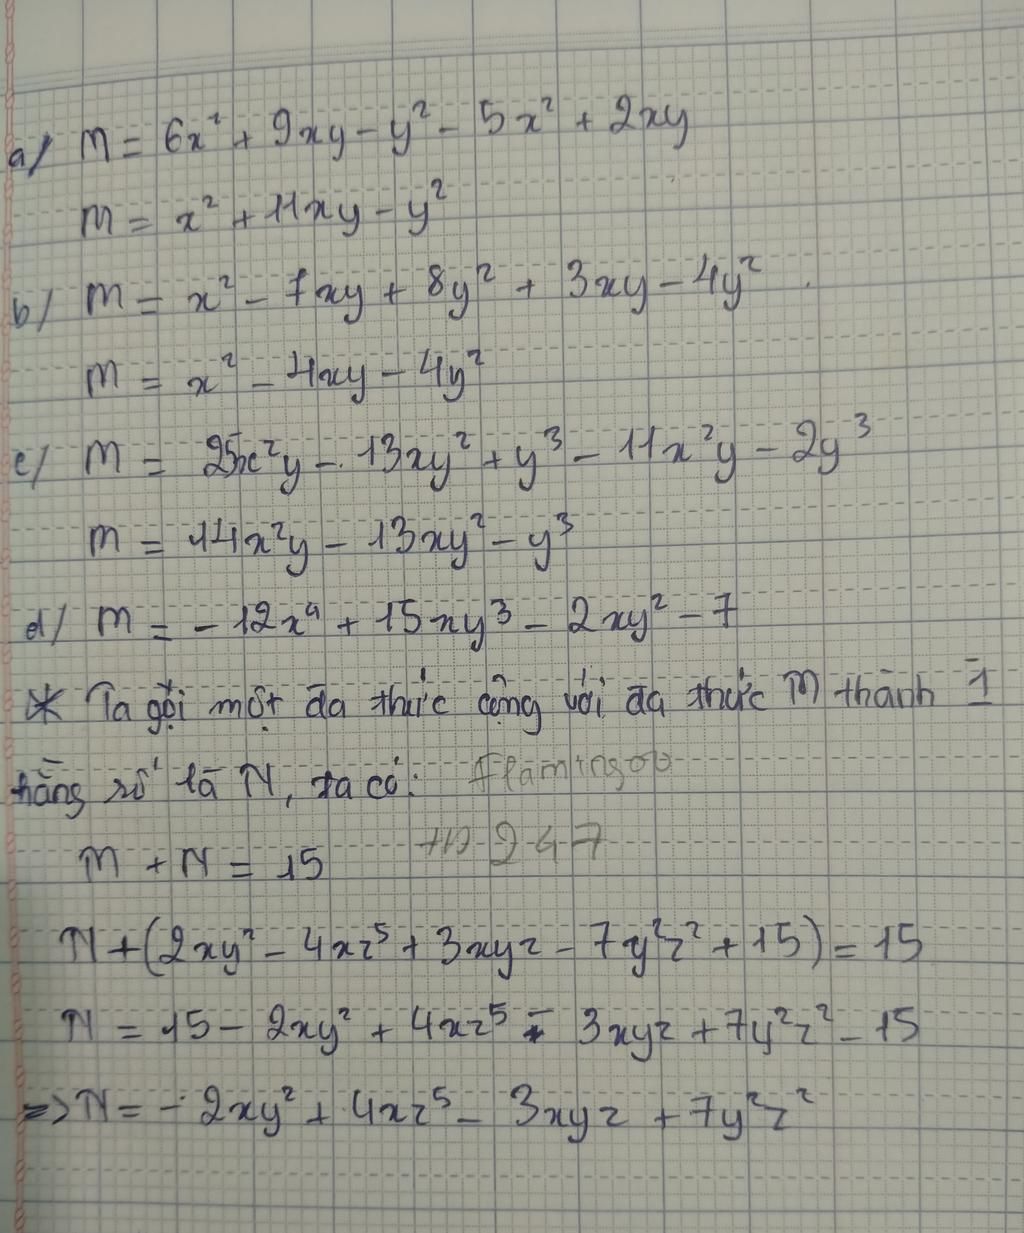 a/ M = 6x² + 9xy - y² - 5x² + 2xy
M = x² + 11xy - y²
b/ M = x² - 7xy + 8y² + 3xy - 4y²
M = x² - 4xy - 4y²
c/ M = 25x²y - 13xy² + y³ - 11x²y - 2y³
M = 14x²y - 13xy² - y³
d/ M = - 12x⁴ + 15xy³ - 2xy² - 7
* Ta gọi một đa thức cộng với đa thức M thành 1
hằng số là N, ta có: flamingoo
M + N = 15 247
N + (2xy² - 4xz⁵ + 3xyz - 7y²z² + 15) = 15
N = 15 - 2xy² + 4xz⁵ - 3xyz + 7y²z² - 15
=> N = - 2xy² + 4xz⁵ - 3xyz + 7y²z²